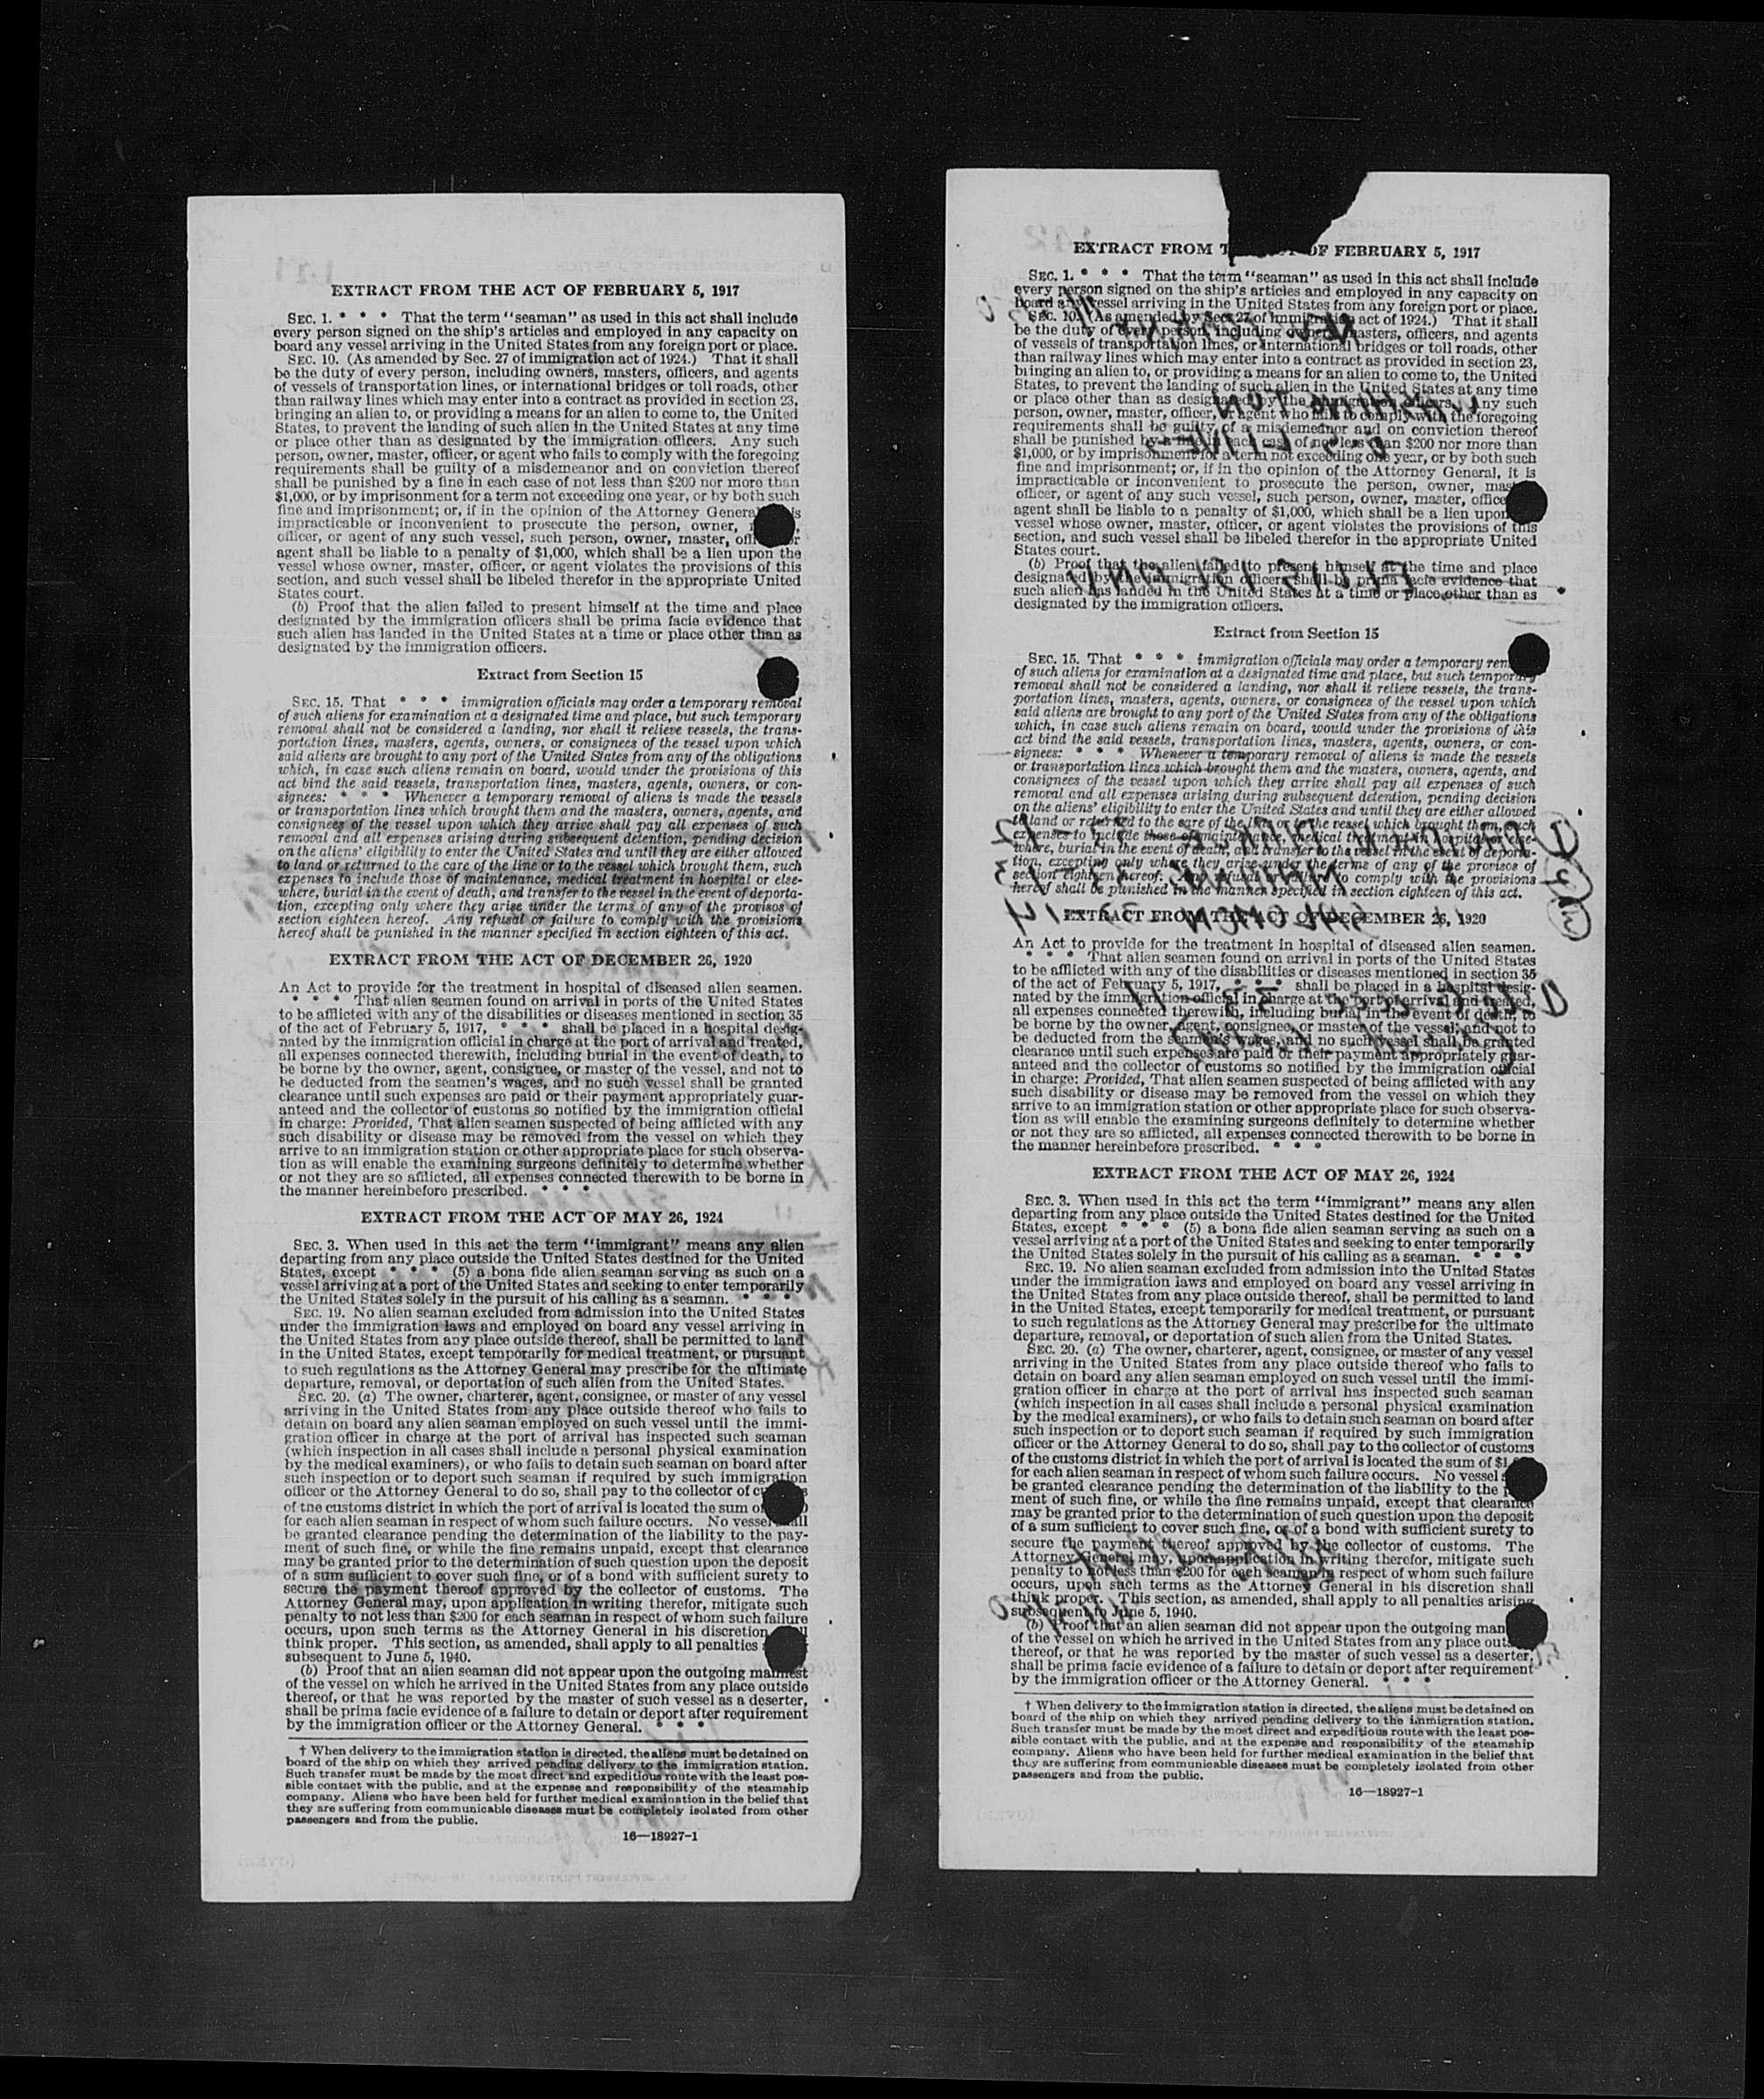 EXTRACT FROM THE ACT OF FEBRUARY 5, 1917
SEC. 1. * * * That the term "seaman" as used in this act shall include
every person signed on the ship's articles and employed in any capacity on
board any vessel arriving in the United States from any foreign port or place.
SEC. 10. (As amended by Sec. 27 of immigration act of 1924.) That it shall
be the duty of every person, including owners, masters, officers, and agents
of vessels of transportation lines, or international bridges or toll roads, other
than railway lines which may enter into a contract as provided in section 23,
bringing an alien to, or providing a means for an alien to come to, the United
States, to prevent the landing of such alien in the United States at any time
or place other than as designated by the immigration officers. Any such
person, owner, master, officer, or agent who fails to comply with the foregoing
requirements shall be guilty of a misdemeanor and on conviction thereof
shall be punished by a fine in each case of not less than $200 nor more than
$1,000, or by imprisonment for a term not exceeding one year, or by both such
fine and imprisonment; or, if in the opinion of the Attorney General
impracticable or inconvenient to prosecute the person, owner,
officer, or agent of any such vessel, such person, owner, master,
agent shall be liable to a penalty of $1,000, which shall be a lien upon the
vessel whose owner, master, officer, or agent violates the provisions of this
section, and such vessel shall be libeled therefor in the appropriate United
States court.
(b) Proof that the alien failed to present himself at the time and place
designated by the immigration officers shall be prima facie evidence that
such alien has landed in the United States at a time or place other than as
designated by the immigration officers.
Extract from Section 15
SEC. 15. That * * * immigration officials may order a temporary removal
of such aliens for examination at a designated time and place, but such temporary
removal shall not be considered a landing, nor shall it relieve vessels, the trans-
portation lines, masters, agents, owners, or consignees of the vessel upon which
said aliens are brought to any port of the United States from any of the obligations
which, in case such aliens remain on board, would under the provisions of this
act bind the said vessels, transportation lines, masters, agents, owners, or con-
signees: * * * Whenever a temporary removal of aliens is made the vessels
or transportation lines which brought them and the masters, owners, agents, and
consignees of the vessel upon which they arrive shall pay all expenses of such
removal and all expenses arising during subsequent detention, pending decision
on the aliens' eligibility to enter the United States and until they are either allowed
to land or returned to the care of the line or to the vessel which brought them, such
expenses to include those of maintenance, medical treatment in hospital or else-
where, burial in the event of death, and transfer to the vessel in the event of deporta-
tion, excepting only where they arise under the terms of any of the provisos of
section eighteen hereof. Any refusal or failure to comply with the provisions
hereof shall be punished in the manner specified in section eighteen of this act.
EXTRACT FROM THE ACT OF DECEMBER 26, 1920
An Act to provide for the treatment in hospital of diseased alien seamen.
* * * That alien seamen found on arrival in ports of the United States
to be afflicted with any of the disabilities or diseases mentioned in section 35
of the act of February 5, 1917, * * * shall be placed in a hospital desig-
nated by the immigration official in charge at the port of arrival and treated,
all expenses connected therewith, including burial in the event of death, to
be borne by the owner, agent, consignee, or master of the vessel, and not to
be deducted from the seamen's wages, and no such vessel shall be granted
clearance until such expenses are paid or their payment appropriately guar-
anteed and the collector of customs so notified by the immigration official
in charge: Provided, That alien seamen suspected of being afflicted with any
such disability or disease may be removed from the vessel on which they
arrive to an immigration station or other appropriate place for such observa-
tion as will enable the examining surgeons definitely to determine whether
or not they are so afflicted, all expenses connected therewith to be borne in
the manner hereinbefore prescribed. * * *
EXTRACT FROM THE ACT OF MAY 26, 1924
SEC. 3. When used in this act the term "immigrant" means any alien
departing from any place outside the United States destined for the United
States, except * * * (5) a bona fide alien seaman serving as such on a
vessel arriving at a port of the United States and seeking to enter temporarily
the United States solely in the pursuit of his calling as a seaman. * * *
SEC. 19. No alien seaman excluded from admission into the United States
under the immigration laws and employed on board any vessel arriving in
the United States from any place outside thereof, shall be permitted to land
in the United States, except temporarily for medical treatment, or pursuant
to such regulations as the Attorney General may prescribe for the ultimate
departure, removal, or deportation of such alien from the United States.
SEC. 20. (a) The owner, charterer, agent, consignee, or master of any vessel
arriving in the United States from any place outside thereof who fails to
detain on board any alien seaman employed on such vessel until the immi-
gration officer in charge at the port of arrival has inspected such seaman
(which inspection in all cases shall include a personal physical examination
by the medical examiners), or who fails to detain such seaman on board after
such inspection or to deport such seaman if required by such immigration
officer or the Attorney General to do so, shall pay to the collector of
of the customs district in which the port of arrival is located the sum of
for each alien seaman in respect of whom such failure occurs. No vessel
be granted clearance pending the determination of the liability to the pay-
ment of such fine, or while the fine remains unpaid, except that clearance
may be granted prior to the determination of such question upon the deposit
of a sum sufficient to cover such fine, or of a bond with sufficient surety to
secure the payment thereof approved by the collector of customs. The
Attorney General may, upon application in writing therefor, mitigate such
penalty to not less than $200 for each seaman in respect of whom such failure
occurs, upon such terms as the Attorney General in his discretion
think proper. This section, as amended, shall apply to all penalties
subsequent to June 5, 1940.
(b) Proof that an alien seaman did not appear upon the outgoing manifest
of the vessel on which he arrived in the United States from any place outside
thereof, or that he was reported by the master of such vessel as a deserter,
shall be prima facie evidence of a failure to detain or deport after requirement
by the immigration officer or the Attorney General. * * *
† When delivery to the immigration station is directed, the aliens must be detained on
board of the ship on which they arrived pending delivery to the immigration station.
Such transfer must be made by the most direct and expeditious route with the least pos-
sible contact with the public, and at the expense and responsibility of the steamship
company. Aliens who have been held for further medical examination in the belief that
they are suffering from communicable diseases must be completely isolated from other
passengers and from the public.
16—18927-1
EXTRACT FROM OF FEBRUARY 5, 1917
SEC. 1. * * * That the term "seaman" as used in this act shall include
every person signed on the ship's articles and employed in any capacity on
board any vessel arriving in the United States from any foreign port or place.
SEC. 10. (As amended by Sec. 27 of immigration act of 1924.) That it shall
be the duty of every person, including owners, masters, officers, and agents
of vessels of transportation lines, or international bridges or toll roads, other
than railway lines which may enter into a contract as provided in section 23,
bringing an alien to, or providing a means for an alien to come to, the United
States, to prevent the landing of such alien in the United States at any time
or place other than as designated by the immigration officers. Any such
person, owner, master, officer, or agent who fails to comply with the foregoing
requirements shall be guilty of a misdemeanor and on conviction thereof
shall be punished by a fine in each case of not less than $200 nor more than
$1,000, or by imprisonment for a term not exceeding one year, or by both such
fine and imprisonment; or, if in the opinion of the Attorney General, it is
impracticable or inconvenient to prosecute the person, owner,
officer, or agent of any such vessel, such person, owner, master,
agent shall be liable to a penalty of $1,000, which shall be a lien upon
vessel whose owner, master, officer, or agent violates the provisions of this
section, and such vessel shall be libeled therefor in the appropriate United
States court.
(b) Proof that the alien failed to present himself at the time and place
designated by the immigration officers shall be prima facie evidence that
such alien has landed in the United States at a time or place other than as
designated by the immigration officers.
Extract from Section 15
SEC. 15. That * * * immigration officials may order a temporary
of such aliens for examination at a designated time and place, but such temporary
removal shall not be considered a landing, nor shall it relieve vessels, the trans-
portation lines, masters, agents, owners, or consignees of the vessel upon which
said aliens are brought to any port of the United States from any of the obligations
which, in case such aliens remain on board, would under the provisions of this
act bind the said vessels, transportation lines, masters, agents, owners, or con-
signees: * * * Whenever a temporary removal of aliens is made the vessels
or transportation lines which brought them and the masters, owners, agents, and
consignees of the vessel upon which they arrive shall pay all expenses of such
removal and all expenses arising during subsequent detention, pending decision
on the aliens' eligibility to enter the United States and until they are either allowed
to land or returned to the care of the line or to the vessel which brought them, such
expenses to include those of maintenance, medical treatment in hospital or else-
where, burial in the event of death, and transfer to the vessel in the event of deporta-
tion, excepting only where they arise under the terms of any of the provisos of
section eighteen hereof. Any refusal or failure to comply with the provisions
hereof shall be punished in the manner specified in section eighteen of this act.
EXTRACT FROM THE ACT OF DECEMBER 26, 1920
An Act to provide for the treatment in hospital of diseased alien seamen.
* * * * That alien seamen found on arrival in ports of the United States
to be afflicted with any of the disabilities or diseases mentioned in section 35
of the act of February 5, 1917, * * * shall be placed in a hospital desig-
nated by the immigration official in charge at the port of arrival and treated,
all expenses connected therewith, including burial in the event of death, to
be borne by the owner, agent, consignee, or master of the vessel, and not to
be deducted from the seamen's wages, and no such vessel shall be granted
clearance until such expenses are paid or their payment appropriately guar-
anteed and the collector of customs so notified by the immigration official
in charge: Provided, That alien seamen suspected of being afflicted with any
such disability or disease may be removed from the vessel on which they
arrive to an immigration station or other appropriate place for such observa-
tion as will enable the examining surgeons definitely to determine whether
or not they are so afflicted, all expenses connected therewith to be borne in
the manner hereinbefore prescribed. * * *
EXTRACT FROM THE ACT OF MAY 26, 1924
SEC. 3. When used in this act the term "immigrant" means any alien
departing from any place outside the United States destined for the United
States, except * * * (5) a bona fide alien seaman serving as such on a
vessel arriving at a port of the United States and seeking to enter temporarily
the United States solely in the pursuit of his calling as a seaman. * * *
SEC. 19. No alien seaman excluded from admission into the United States
under the immigration laws and employed on board any vessel arriving in
the United States from any place outside thereof, shall be permitted to land
in the United States, except temporarily for medical treatment, or pursuant
to such regulations as the Attorney General may prescribe for the ultimate
departure, removal, or deportation of such alien from the United States.
SEC. 20. (a) The owner, charterer, agent, consignee, or master of any vessel
arriving in the United States from any place outside thereof who fails to
detain on board any alien seaman employed on such vessel until the immi-
gration officer in charge at the port of arrival has inspected such seaman
(which inspection in all cases shall include a personal physical examination
by the medical examiners), or who fails to detain such seaman on board after
such inspection or to deport such seaman if required by such immigration
officer or the Attorney General to do so, shall pay to the collector of customs
of the customs district in which the port of arrival is located the sum of
for each alien seaman in respect of whom such failure occurs. No vessel
be granted clearance pending the determination of the liability to the
ment of such fine, or while the fine remains unpaid, except that clearance
may be granted prior to the determination of such question upon the deposit
of a sum sufficient to cover such fine, or of a bond with sufficient surety to
secure the payment thereof approved by the collector of customs. The
Attorney General may, upon application in writing therefor, mitigate such
penalty to not less than $200 for each seaman in respect of whom such failure
occurs, upon such terms as the Attorney General in his discretion shall
think proper. This section, as amended, shall apply to all penalties arising
subsequent to June 5, 1940.
(b) Proof that an alien seaman did not appear upon the outgoing
of the vessel on which he arrived in the United States from any place
thereof, or that he was reported by the master of such vessel as a deserter,
shall be prima facie evidence of a failure to detain or deport after requirement
by the immigration officer or the Attorney General. * * *
† When delivery to the immigration station is directed, the aliens must be detained on
board of the ship on which they arrived pending delivery to the immigration station.
Such transfer must be made by the most direct and expeditious route with the least pos-
sible contact with the public, and at the expense and responsibility of the steamship
company. Aliens who have been held for further medical examination in the belief that
they are suffering from communicable diseases must be completely isolated from other
passengers and from the public.
16—18927-1